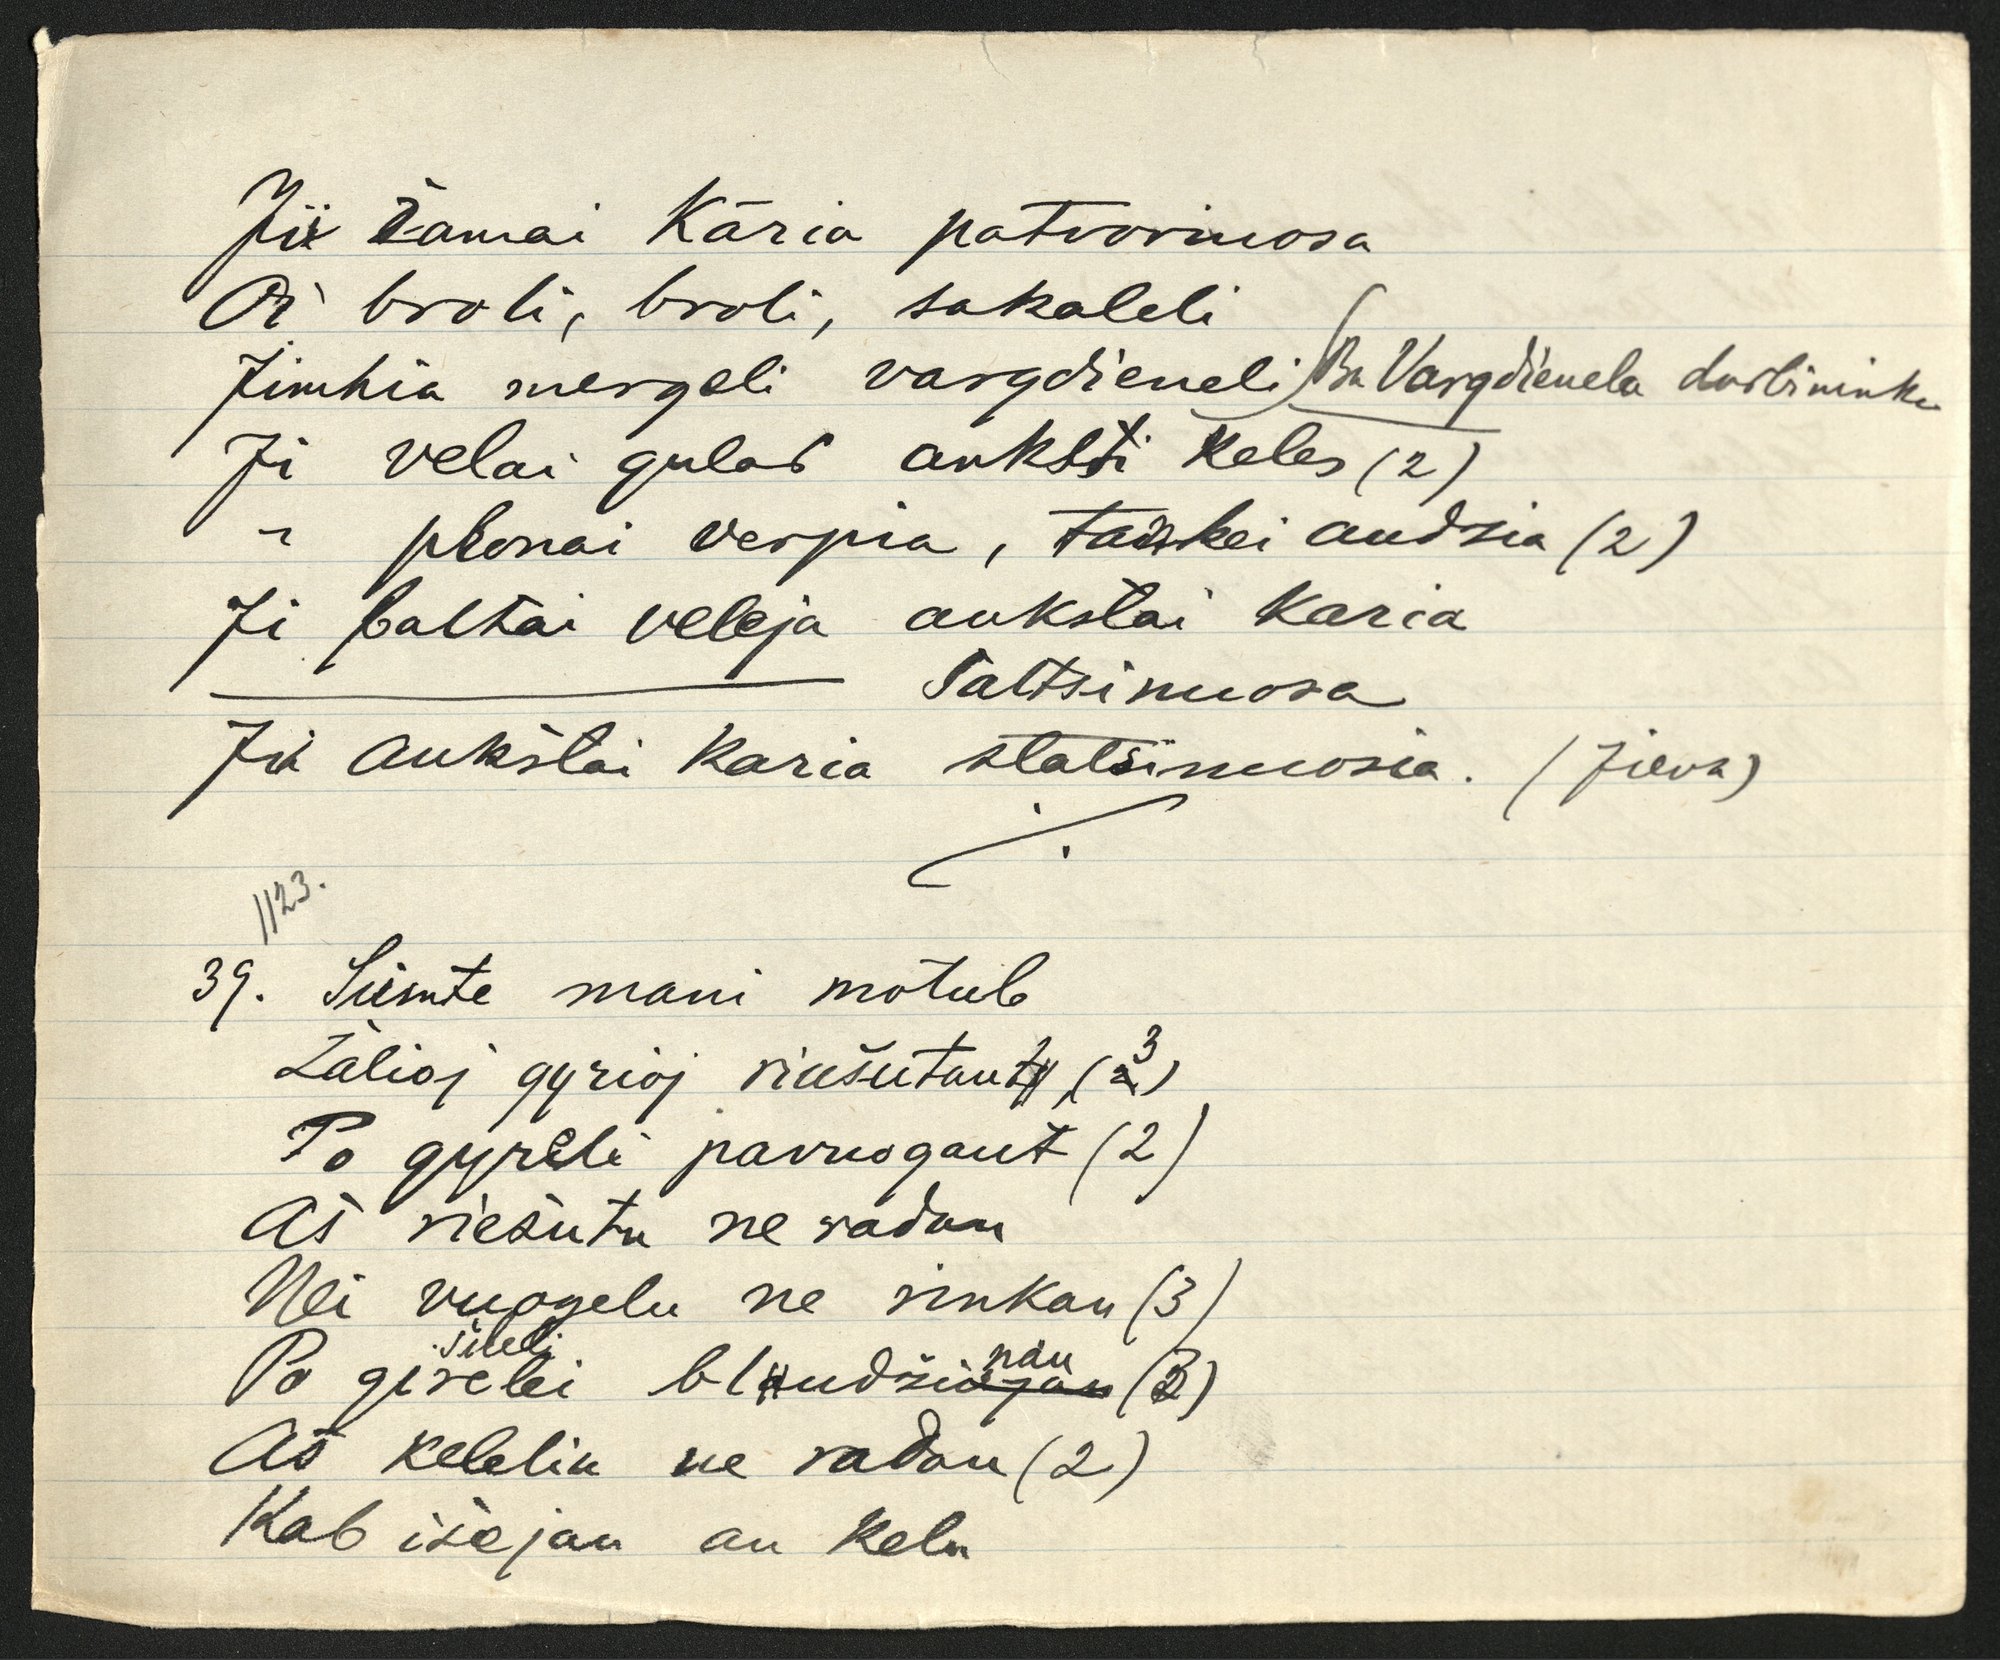 Ji žamai Karia patvorinosa
Oi broli, broli, sakaleli
Jimkia mergeli vargdieneli (Ba Vargdienela darbininka
Ji velai gulas anksti keles (2)
" plonai verpia, tankei audzia (2)
Ji baltai veleja aukstai karia
Saltsinuosa
Ji aukštai karia statsinuosia. (Jieva)
1123.
39. Siuntė mani motulė
Žalioj gyrioj riešutaut, (3)
Po gyreli pavuogaut (2)
Aš riešutu ne radau
Nei vuogelu ne rinkau (3)
šileli
Po girelei bludžiojau (2)
nau
Aš kelelia ne radau (2)
Kab išejau an kela